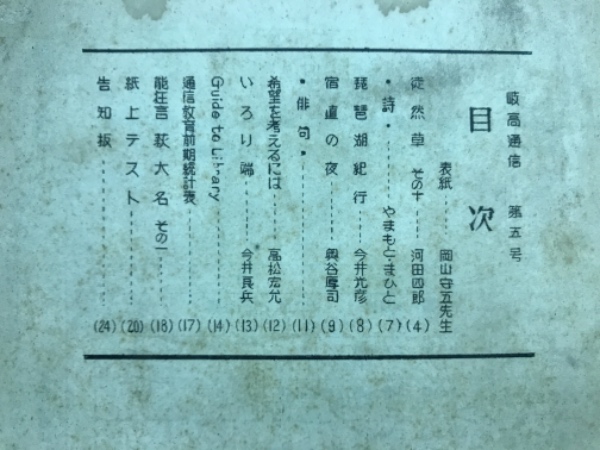 岐高通信 第五号
目次
表紙 岡山守五先生
徒然草 その十 河田四郎 (4)
・詩・ やまもと・まひと (7)
琵琶湖紀行 今井光彦 (8)
宿直の夜 奥谷厚司 (9)
・俳句・ (11)
希望を考えるには 高松宏允 (12)
いろり端 今井長兵 (13)
Guide to Library (14)
通信教育前期統計表 (17)
能狂言 萩大名 その一 (18)
紙上テスト (20)
告知板 (24)